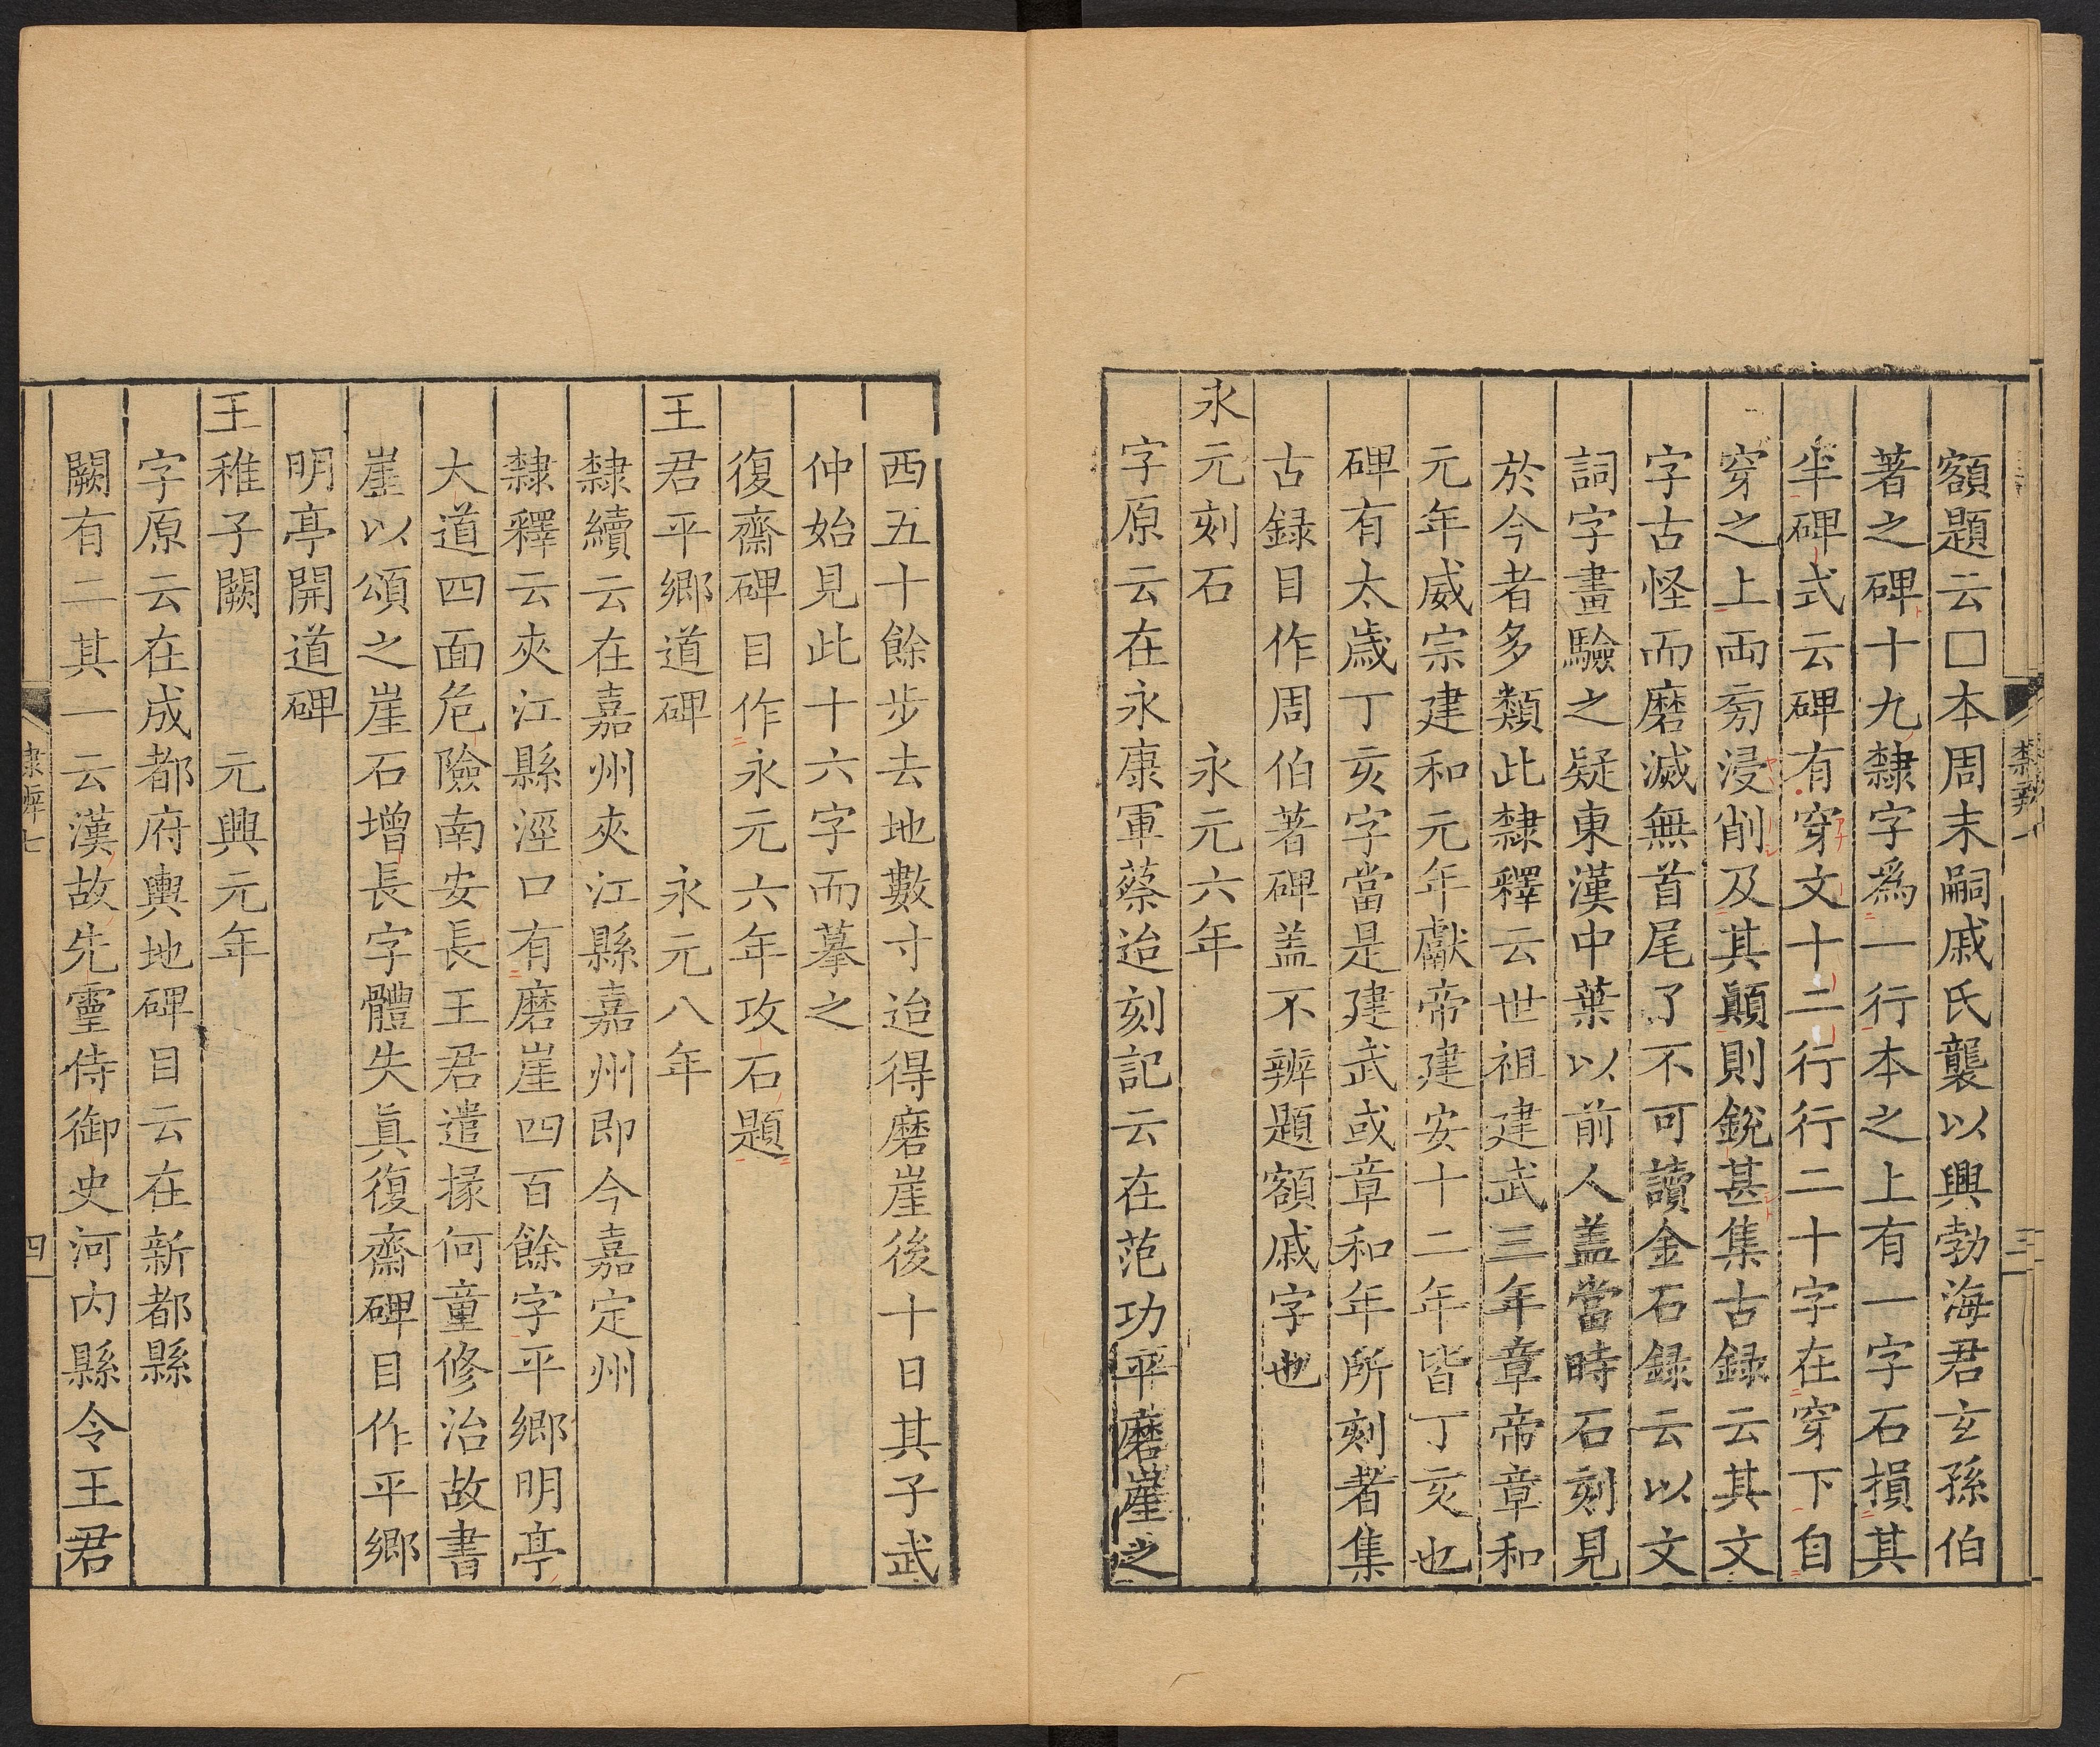 額題云□本周末嗣戚氏襲以興勃海君玄孫伯
著之碑十九隸字為一行本之上有一字石損其
半碑式云碑有穿文十二行行二十字在穿下自
穿之上両旁浸削及其顛則銳甚集古録云其文
字古怪而磨滅無首尾了不可讀金石録云以文
詞字畫驗之疑東漢中葉以前人盖當時石刻見
於今者多類此隸釋云世祖建武三年章帝章和
元年威宗建和元年獻帝建安十二年皆丁亥也
碑有太歲丁亥字當是建武或章和年所刻者集
古録目作周伯著碑盖不辨題額戚字也
永元刻石　永元六年
字原云在永康軍蔡迨刻記云在范功平磨崖之
西五十餘步去地數寸迨得磨崖後十日其子武
仲始見此十六字而摹之
復齋碑目作永元六年攻石題
王君平鄉道碑　永元八年
隸續云在嘉州夾江縣嘉州即今嘉定州
隸釋云夾江縣涇口有磨崖四百餘字平鄉明亭
大道四面危險南安長王君遣掾何童修治故書
崖以頌之崖石增長字體失眞復齋碑目作平鄉
明亭開道碑
王稚子闕　元興元年
字原云在成都府輿地碑目云在新都縣
闕有二其一云漢故先靈侍御史河内縣令王君
隸辨七
四